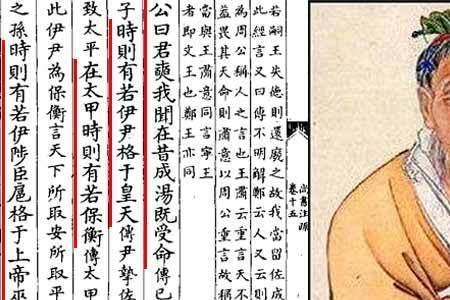 尚書注疏 卷十五
若嗣王失德則還廢之故我當留佐成
此經言又曰傳不明解鄭云人又云則
為周公稱人之言也王肅云重言天不
益畏其天命則肅意以周公重言故稱
當與王肅意同言寧王
者即文王也鄭王亦同
公曰君奭我聞在昔成湯既受命傳已
子時則有若伊尹格于皇天傳伊摯佐
致太平在太甲時則有若保衡傳太甲
此伊尹為保衡言天下所取安所取平
之孫時則有若伊陟臣扈格于上帝巫